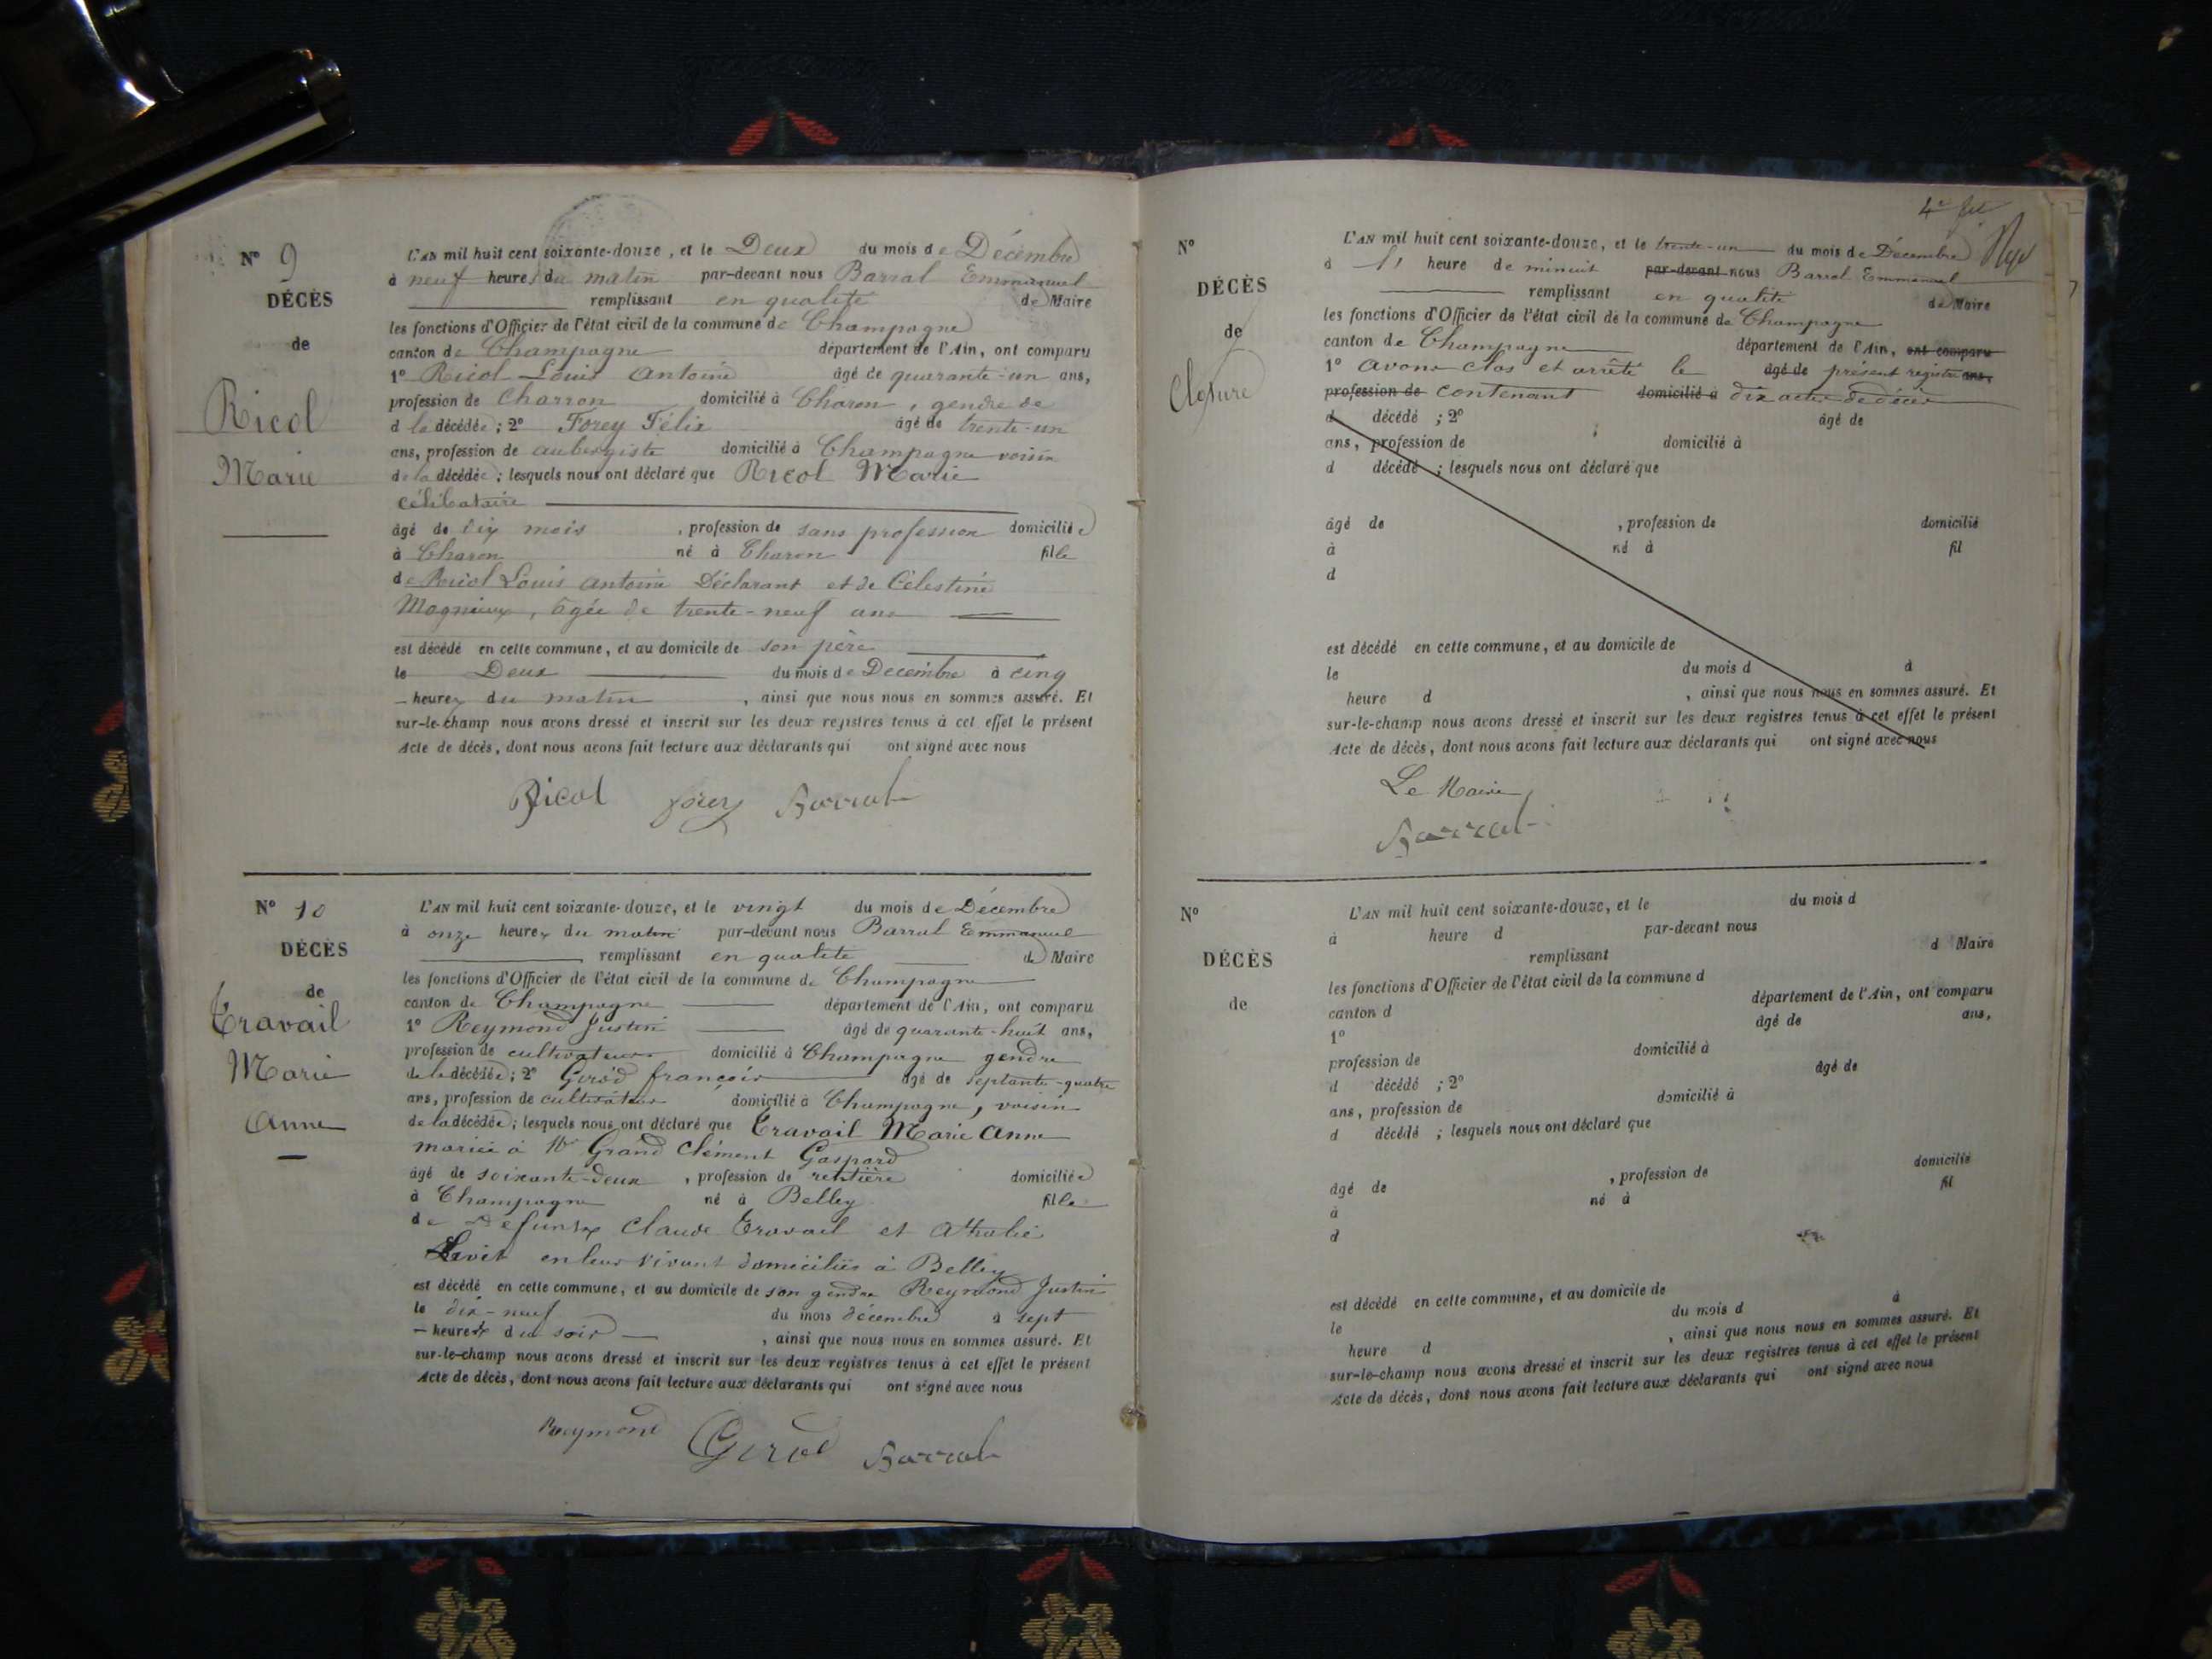 N° 9
DÉCÈS
de
Ricol
Marie
L'AN mil huit cent soixante-douze, et le Deux du mois de Décembre
à neuf heures du matin par-devant nous Barral Emmanuel
remplissant en qualité de Maire
les fonctions d'Officier de l'état civil de la commune de Champagne
canton de Champagne département de l'Ain, ont comparu
1° Ricol Louis Antoine âgé de quarante-un ans,
profession de Charron domicilié à Charon, gendre de
d la décédée; 2° Forey Félix âgé de trente-un
ans, profession de aubergiste domicilié à Champagne voisin
de la décédée; lesquels nous ont déclaré que Ricol Marie
célibataire
âgé de dix mois, profession de sans profession domiciliée
à Charon né à Charon fille
de Ricol Louis Antoine Déclarant et de Célestine
âgée de trente-neuf ans
est décédé en cette commune, et au domicile de son père
le Deux du mois de Décembre à cinq
heures du matin, ainsi que nous nous en sommes assuré. Et
sur-le-champ nous avons dressé et inscrit sur les deux registres tenus à cet effet le présent
Acte de décès, dont nous avons fait lecture aux déclarants qui ont signé avec nous
Ricol forey Barral
N° 10
DÉCÈS
de
Travail
Marie
Anne
L'AN mil huit cent soixante-douze, et le vingt du mois de Décembre
à onze heures du matin par-devant nous Barral Emmanuel
remplissant en qualité de Maire
les fonctions d'Officier de l'état civil de la commune de Champagne
canton de Champagne département de l'Ain, ont comparu
1° Reymond Justin âgé de quarante-huit ans,
profession de cultivateur domicilié à Champagne gendre
de la décédée; 2° Girod françois âgé de septante-quatre
ans, profession de cultivateur domicilié à Champagne, voisin
de la décédée; lesquels nous ont déclaré que Travail Marie Anne
mariée à Mr Grand Clément Gaspard
âgé de soixante-deux, profession de rentière domiciliée
à Champagne né à Belley fille
de Defunts Claude Travail et Athalie
en leur vivant domiciliés à Belley
est décédé en cette commune, et au domicile de son gendre Reymond Justin
le dix-neuf du mois décembre à sept
heures du soir, ainsi que nous nous en sommes assuré. Et
sur-le-champ nous avons dressé et inscrit sur les deux registres tenus à cet effet le présent
Acte de décès, dont nous avons fait lecture aux déclarants qui ont signé avec nous
Reymond Girod Barral
4e
N°
DÉCÈS
de
Cloture
L'AN mil huit cent soixante-douze, et le trente-un du mois de Décembre
à 11 heure de minuit par-devant nous Barral Emmanuel
remplissant en qualité de Maire
les fonctions d'Officier de l'état civil de la commune de Champagne
canton de Champagne département de l'Ain, ont comparu
1° Avons clos et arrêté le âgé de présent registre ans,
profession de contenant domicilié à dix actes de décès
d décédé ; 2° âgé de
ans, profession de domicilié à
d décédé ; lesquels nous ont déclaré que
âgé de , profession de domicilié
à né à fil
d
est décédé en cette commune, et au domicile de
le du mois d à
heure d , ainsi que nous nous en sommes assuré. Et
sur-le-champ nous avons dressé et inscrit sur les deux registres tenus à cet effet le présent
Acte de décès, dont nous avons fait lecture aux déclarants qui ont signé avec nous
Le Maire
Barral
N°
DÉCÈS
de
L'AN mil huit cent soixante-douze, et le du mois d
à heure d par-devant nous
remplissant d Maire
les fonctions d'Officier de l'état civil de la commune d
canton d département de l'Ain, ont comparu
1° âgé de ans,
profession de domicilié à
d décédé ; 2° âgé de
ans, profession de domicilié à
d décédé ; lesquels nous ont déclaré que
âgé de , profession de domicilié
à né à fil
d
est décédé en cette commune, et au domicile de
le du mois d à
heure d , ainsi que nous nous en sommes assuré. Et
sur-le-champ nous avons dressé et inscrit sur les deux registres tenus à cet effet le présent
Acte de décès, dont nous avons fait lecture aux déclarants qui ont signé avec nous